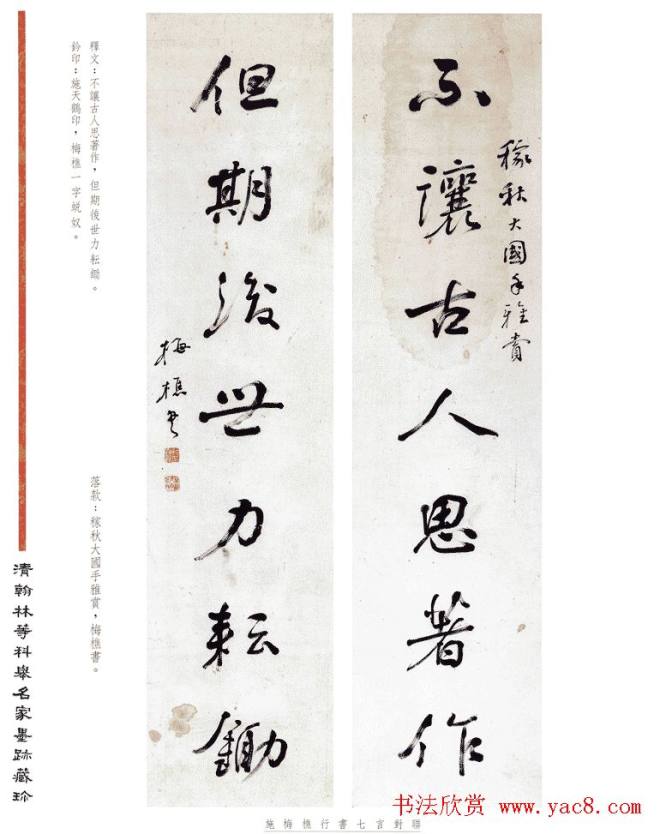 稼秋大國手雅賞
不讓古人思著作
但期後世力耘鋤
梅樵書
釋文：不讓古人思著作，但期後世力耘鋤。
鈐印：施天鶴印，梅樵一字蛻奴。
落款：稼秋大國手雅賞，梅樵書。
清翰林等科舉名家墨跡藏珍
施梅樵行書七言對聯
书法欣赏
www.yac8.com